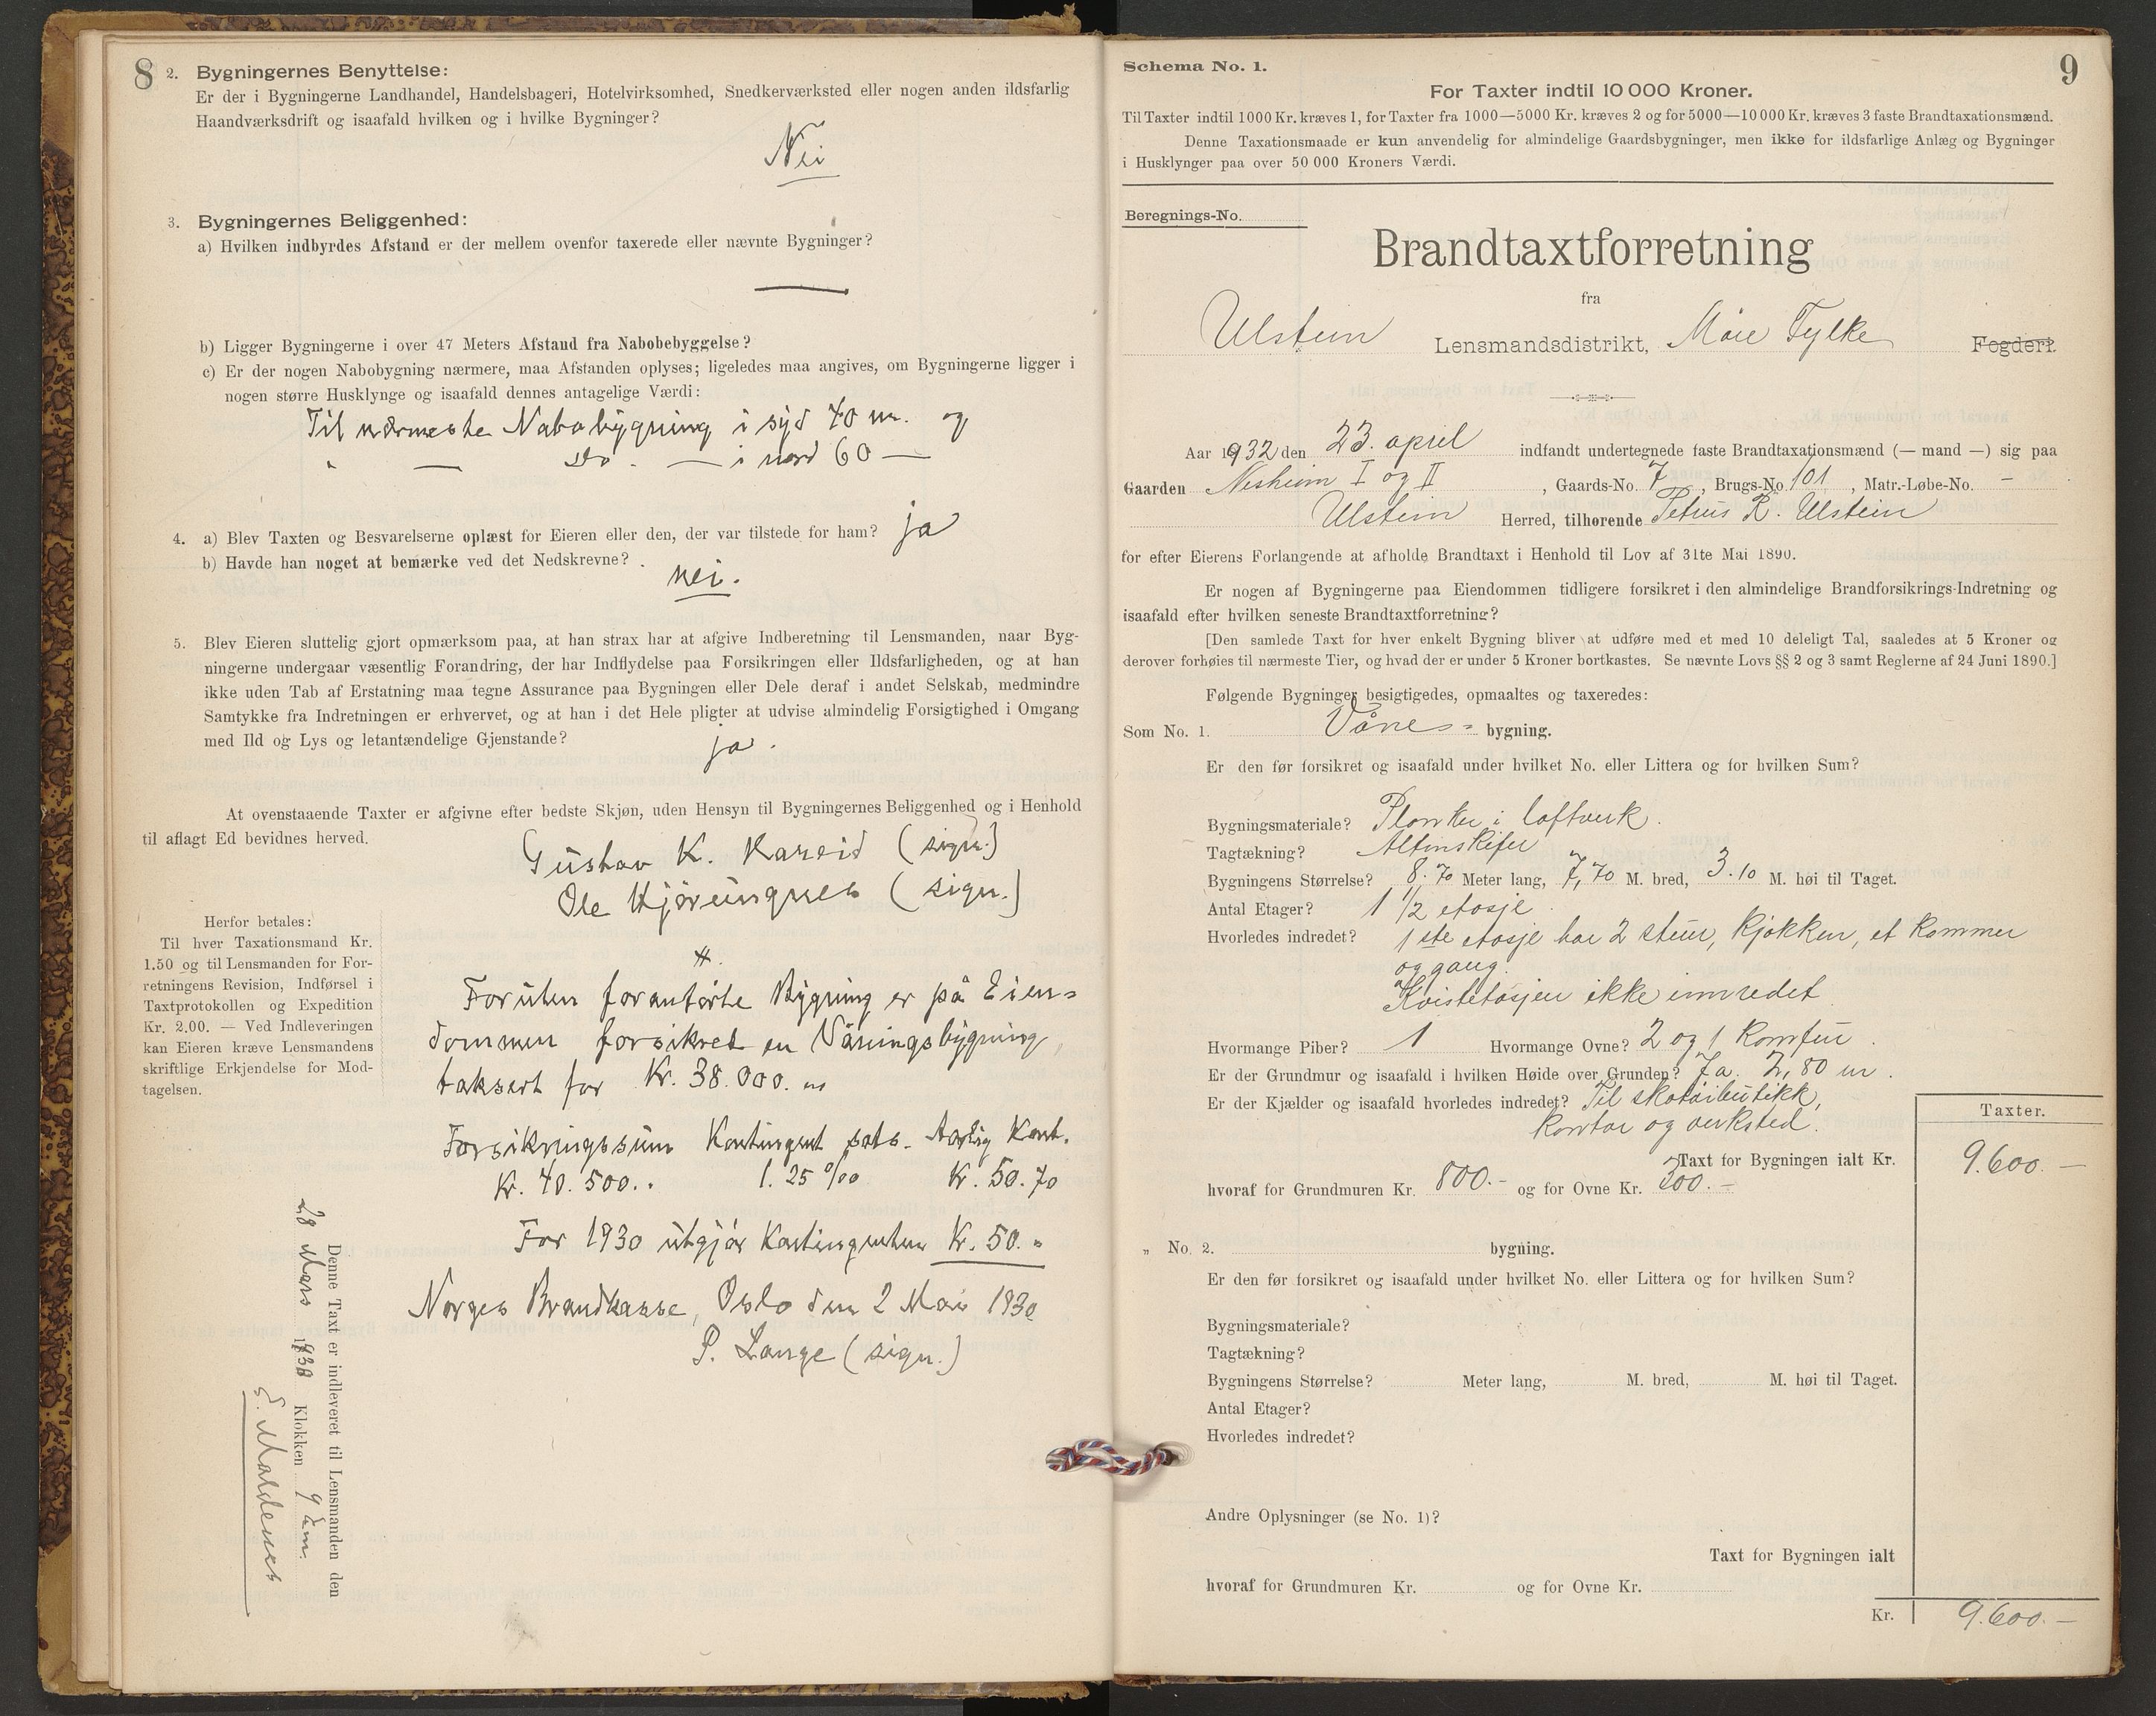 8
2. Bygningernes Benyttelse:
Er der i Bygningerne Landhandel, Handelsbageri, Hotelvirksomhed, Snedkerværksted eller nogen anden ildsfarlig
Haandværksdrift og isaafald hvilken og i hvilke Bygninger?
Nei
3. Bygningernes Beliggenhed:
a) Hvilken indbyrdes Afstand er der mellem ovenfor taxerede eller nævnte Bygninger?
—
b) Ligger Bygningerne i over 47 Meters Afstand fra Nabobebyggelse?
c) Er der nogen Nabobygning nærmere, maa Afstanden oplyses; ligeledes maa angives, om Bygningerne ligger i
nogen større Husklynge og isaafald dennes antagelige Værdi:
Til nærmeste Nabobygning i syd 40 m. og
" — do. — i nord 60 —
4. a) Blev Taxten og Besvarelserne oplæst for Eieren eller den, der var tilstede for ham? ja
b) Havde han noget at bemærke ved det Nedskrevne?
nei.
5. Blev Eieren sluttelig gjort opmærksom paa, at han strax har at afgive Indberetning til Lensmanden, naar Byg-
ningerne undergaar væsentlig Forandring, der har Indflydelse paa Forsikringen eller Ildsfarligheden, og at han
ikke uden Tab af Erstatning maa tegne Assurance paa Bygningen eller Dele deraf i andet Selskab, medmindre
Samtykke fra Indretningen er erhvervet, og at han i det Hele pligter at udvise almindelig Forsigtighed i Omgang
med Ild og Lys og letantændelige Gjenstande?
ja.
At ovenstaaende Taxter er afgivne efter bedste Skjøn, uden Hensyn til Bygningernes Beliggenhed og i Henhold
til aflagt Ed bevidnes herved.
Gustav K. Hareid (sign.)
Ole Hjörungnes (sign.)
Herfor betales:
Til hver Taxationsmand Kr.
1.50 og til Lensmanden for For-
retningens Revision, Indførsel i
Taxtprotokollen og Expedition
Kr. 2.00. — Ved Indleveringen
kan Eieren kræve Lensmandens
skriftlige Erkjendelse for Mod-
tagelsen.
Foruten foranførte Bygning er på Eien=
dommen forsikret en Våningsbygning,
taksert for Kr. 38.000.
Forsikringssum Kontingent sats. Aarlig Kont.
Kr. 40.500.. 1.25 0/00 Kr. 50.70
For 1930 utgjör Kontingenten Kr. 50."
Norges Brandkasse, Oslo den 2 Mai 1930
P. Lange (sign.)
Denne Taxt er indleveret til Lensmanden den
28 Mars 1930 Klokken 9 Em.
E. Maldenes
Schema No. 1.
9
For Taxter indtil 10 000 Kroner.
Til Taxter indtil 1000 Kr. kræves 1, for Taxter fra 1000—5000 Kr. kræves 2 og for 5000—10000 Kr. kræves 3 faste Brandtaxationsmænd.
Denne Taxationsmaade er kun anvendelig for almindelige Gaardsbygninger, men ikke for ildsfarlige Anlæg og Bygninger
i Husklynger paa over 50 000 Kroners Værdi.
Beregnings-No.
Brandtaxtforretning
fra
Ulstein Lensmandsdistrikt, Möre Fylke Fogderi.
Aar 1932 den 23. april indfandt undertegnede faste Brandtaxationsmænd (— mand —) sig paa
Gaarden Nesheim I og II, Gaards-No. 7, Brugs-No. 101, Matr.-Løbe-No. —
Ulstein Herred, tilhørende Petrus R. Ulstein
for efter Eierens Forlangende at afholde Brandtaxt i Henhold til Lov af 31te Mai 1890.
Er nogen af Bygningerne paa Eiendommen tidligere forsikret i den almindelige Brandforsikrings-Indretning og
isaafald efter hvilken seneste Brandtaxtforretning?
[Den samlede Taxt for hver enkelt Bygning bliver at udføre med et med 10 deleligt Tal, saaledes at 5 Kroner og
derover forhøies til nærmeste Tier, og hvad der er under 5 Kroner bortkastes. Se nævnte Lovs §§ 2 og 3 samt Reglerne af 24 Juni 1890.]
Følgende Bygninger besigtigedes, opmaaltes og taxeredes:
Som No. 1. Vånes= bygning.
Er den før forsikret og isaafald under hvilket No. eller Littera og for hvilken Sum?
Bygningsmateriale? Planker i loftverk.
Tagtækning? Altaskifer
Bygningens Størrelse? 8.70 Meter lang, 7,70 M. bred, 3.10 M. høi til Taget.
Antal Etager? 1 1/2 etasje.
Hvorledes indredet? 1ste etasje har 2 stuer, kjøkken, et kammer
og gang.
Kvistetasjen ikke innredet
Hvormange Piber? 1 Hvormange Ovne? 2 og 1 komfur.
Er der Grundmur og isaafald i hvilken Høide over Grunden? Ja. 2,80 m.
Er der Kjælder og isaafald hvorledes indredet? Til skotöibutikk,
kontor og verksted.
Taxter.
Taxt for Bygningen ialt Kr. 9.600.—
hvoraf for Grundmuren Kr. 800.— og for Ovne Kr. 200.—
" No. 2. bygning.
Er den før forsikret og isaafald under hvilket No. eller Littera og for hvilken Sum?
Bygningsmateriale?
Tagtækning?
Bygningens Størrelse? Meter lang, M. bred, M. høi til Taget.
Antal Etager?
Hvorledes indredet?
Andre Oplysninger (se No. 1)?
Taxt for Bygningen ialt
hvoraf for Grundmuren Kr. og for Ovne Kr.
Kr. 9.600.—